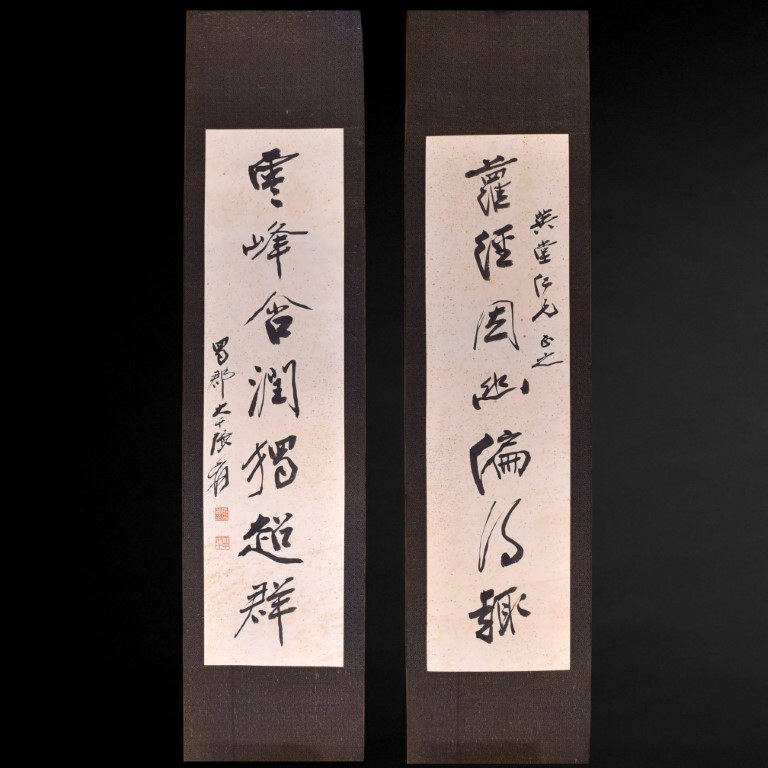 蘿徑因幽偏得趣
英堂仁兄正之
雲峰含潤獨超群
蜀郡大千張爰